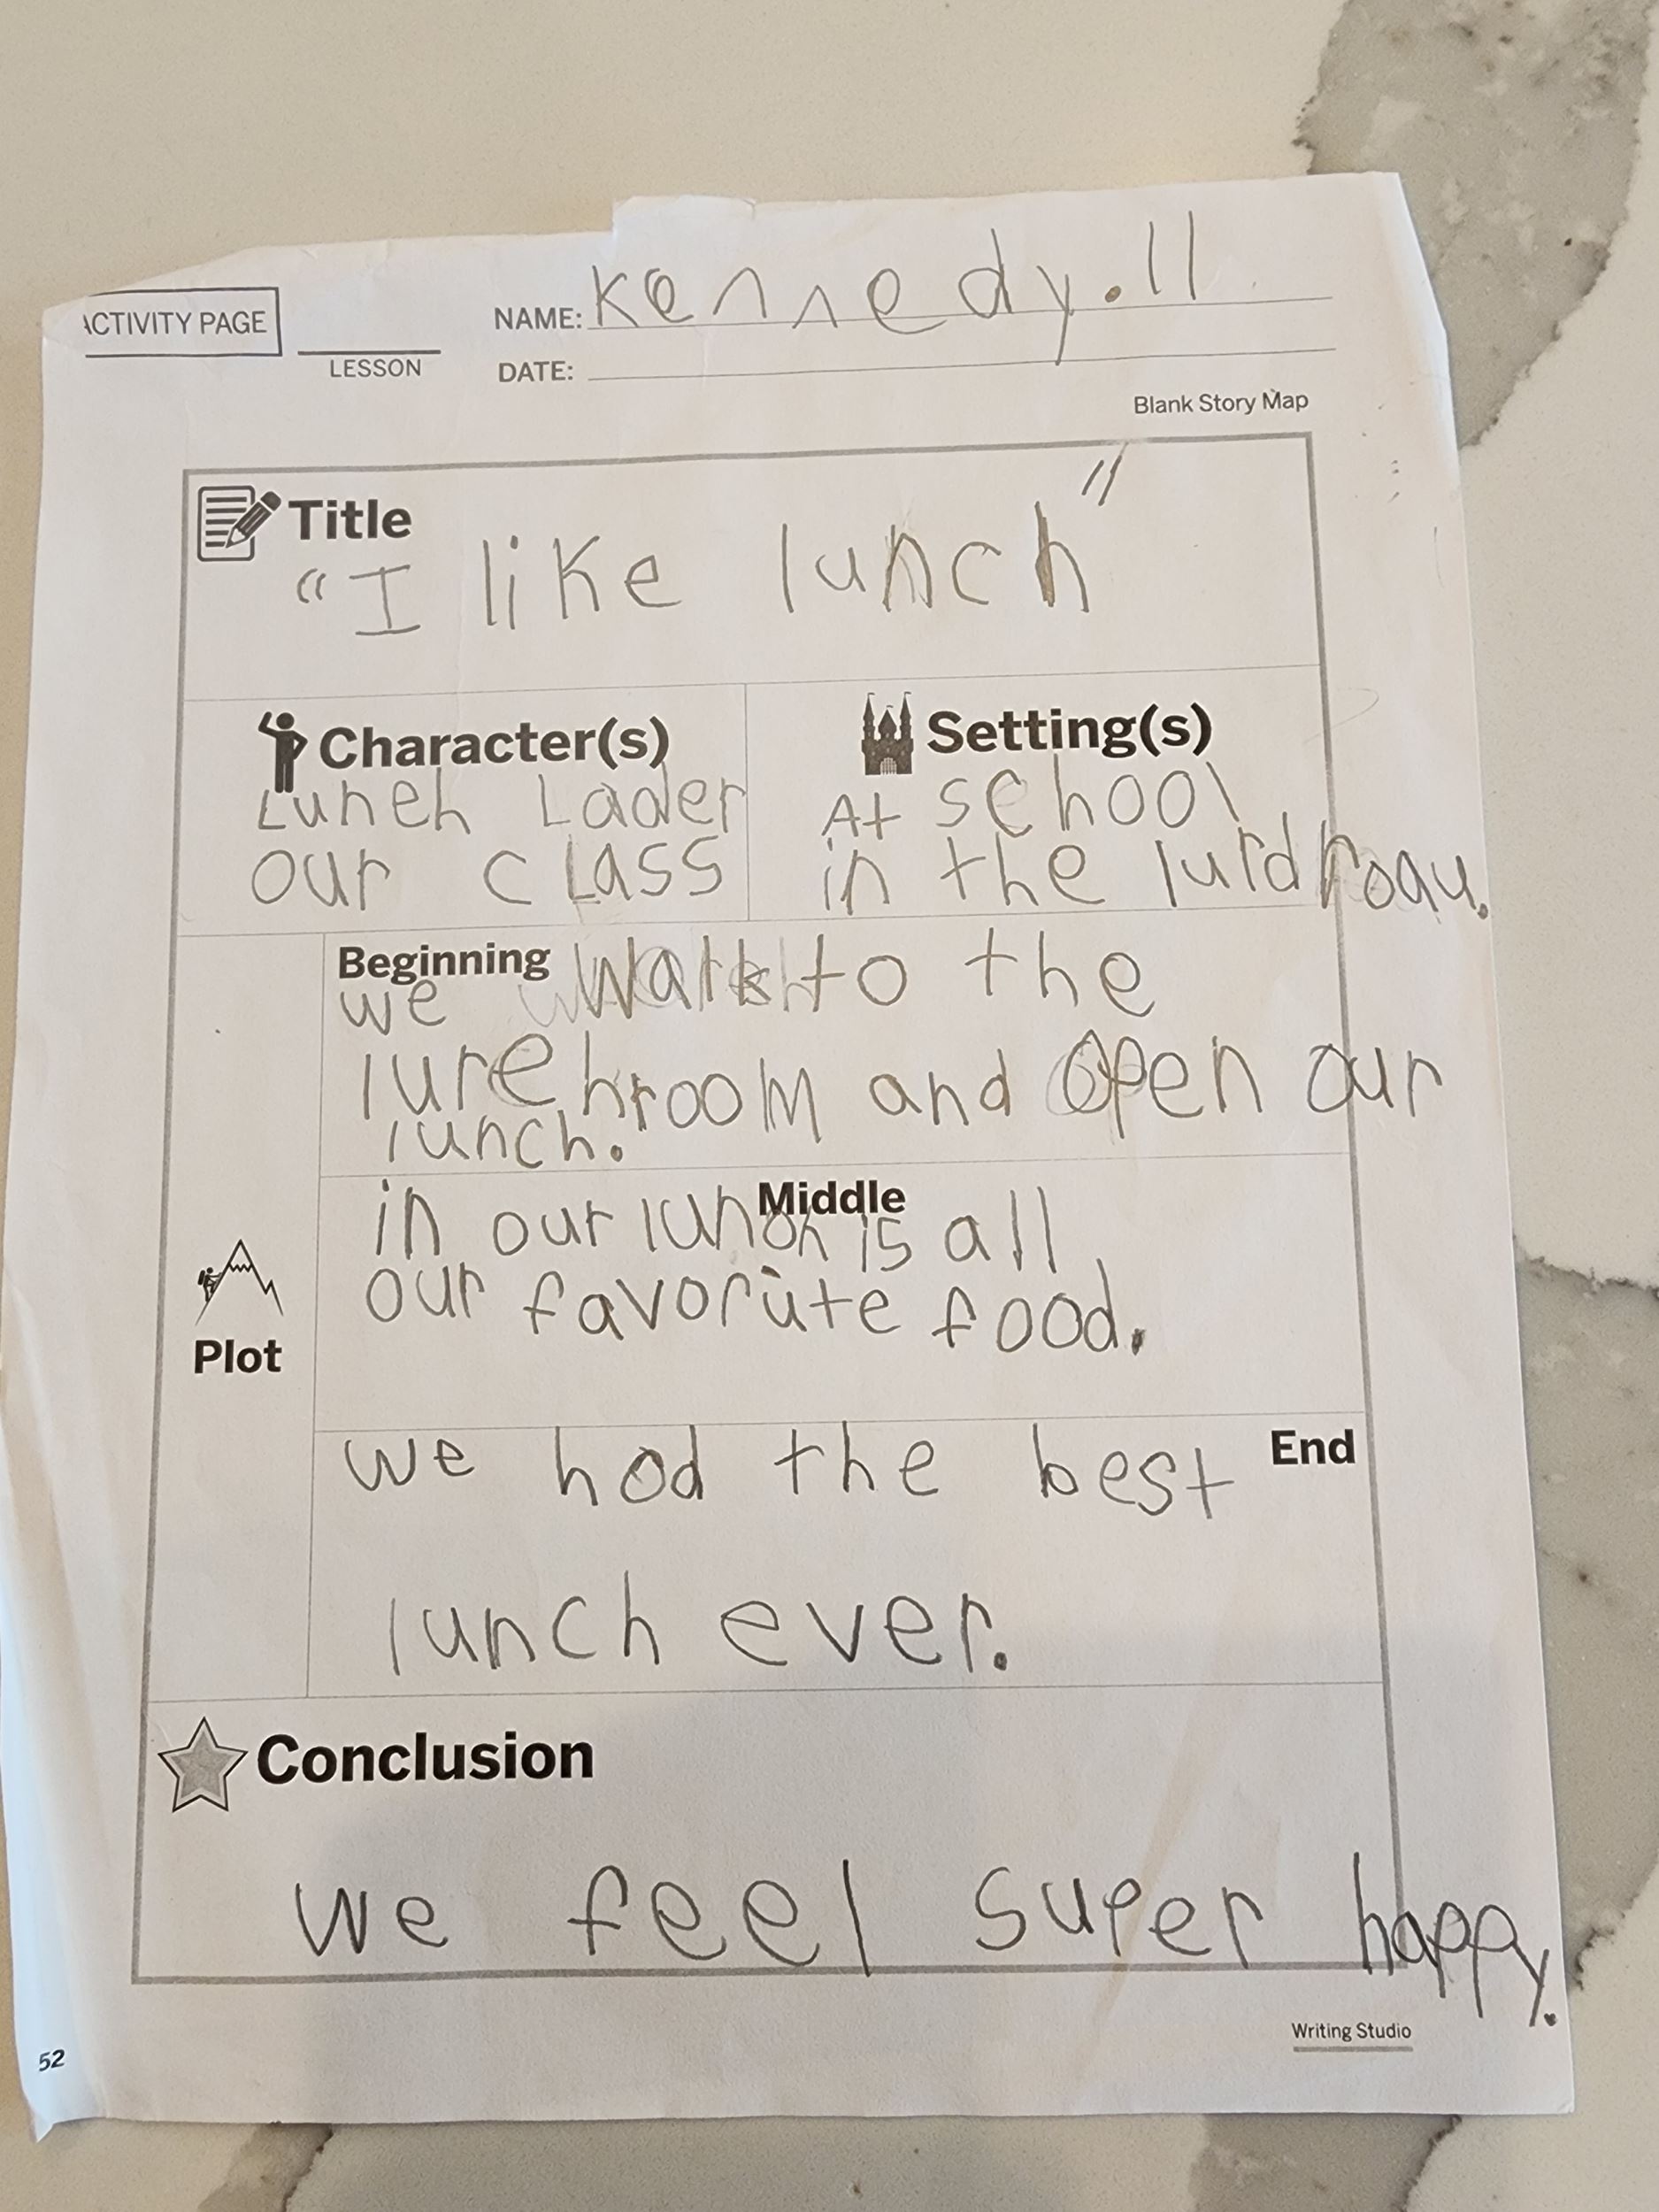 ACTIVITY PAGE
LESSON
NAME: Kennedy.11
DATE:
Blank Story Map
Title
"I like lunch"
Character(s)
Lunch Lader
our cLass
Setting(s)
At school
in the
Beginning
we walk to the
lurehroom and open our
lunch.
Middle
in our lunch is all
our favorite food.
Plot
End
we had the best
lunch ever.
Conclusion
we feel super happy.
Writing Studio
52